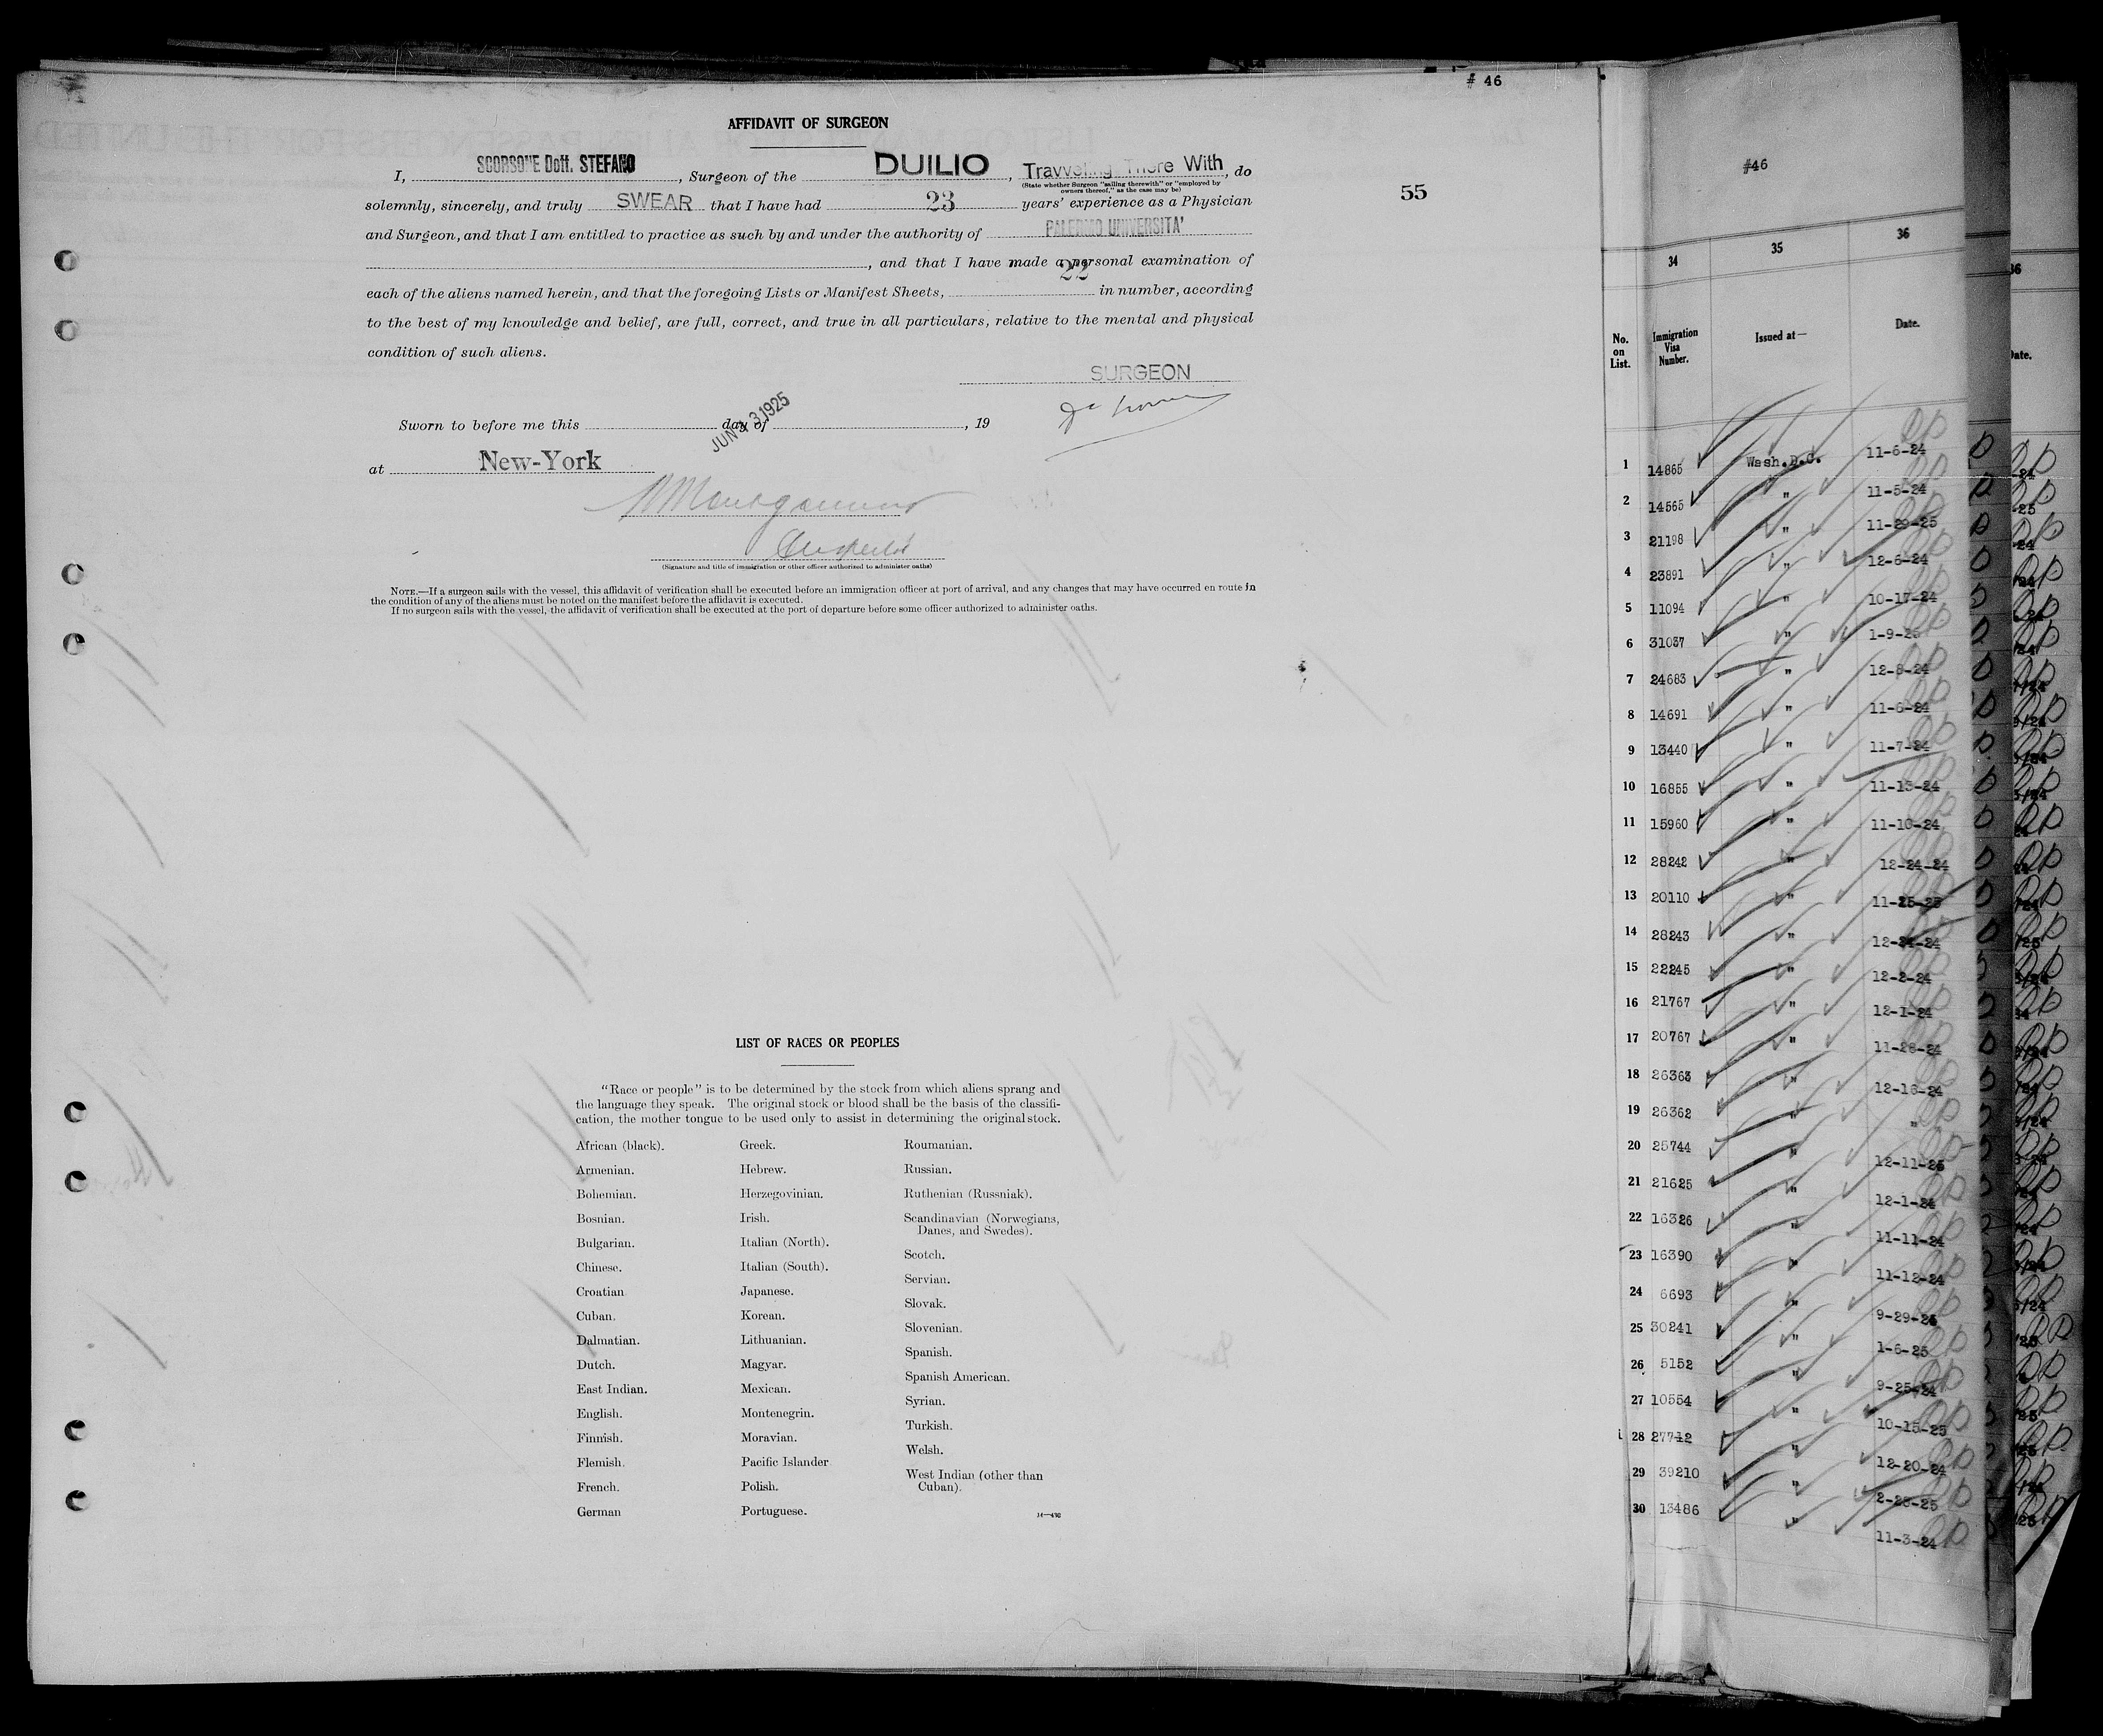 # 46
AFFIDAVIT OF SURGEON
I, SCORSONE Dott. STEFANO, Surgeon of the DUILIO, Travveling There With, do
(State whether Surgeon "sailing therewith" or "employed by
owners thereof," as the case may be)
55
solemnly, sincerely, and truly SWEAR that I have had 23 years' experience as a Physician
and Surgeon, and that I am entitled to practice as such by and under the authority of PALERMO UNIVERSITA'
, and that I have made a personal examination of
each of the aliens named herein, and that the foregoing Lists or Manifest Sheets, 22 in number, according
to the best of my knowledge and belief, are full, correct, and true in all particulars, relative to the mental and physical
condition of such aliens.
SURGEON
Sworn to before me this day of , 19
JUN 1925
at New-York
(Signature and title of immigration or other officer authorized to administer oaths)
NOTE.—If a surgeon sails with the vessel, this affidavit of verification shall be executed before an immigration officer at port of arrival, and any changes that may have occurred en route in
the condition of any of the aliens must be noted on the manifest before the affidavit is executed.
If no surgeon sails with the vessel, the affidavit of verification shall be executed at the port of departure before some officer authorized to administer oaths.
LIST OF RACES OR PEOPLES
"Race or people" is to be determined by the stock from which aliens sprang and
the language they speak. The original stock or blood shall be the basis of the classifi-
cation, the mother tongue to be used only to assist in determining the original stock.
African (black).
Armenian.
Bohemian.
Bosnian.
Bulgarian.
Chinese.
Croatian
Cuban.
Dalmatian.
Dutch.
East Indian.
English.
Finnish.
Flemish.
French.
German
Greek.
Hebrew.
Herzegovinian.
Irish.
Italian (North).
Italian (South).
Japanese.
Korean.
Lithuanian.
Magyar.
Mexican.
Montenegrin.
Moravian.
Pacific Islander
Polish.
Portuguese.
Roumanian.
Russian.
Ruthenian (Russniak).
Scandinavian (Norwegians,
Danes, and Swedes).
Scotch.
Servian.
Slovak.
Slovenian.
Spanish.
Spanish American.
Syrian.
Turkish.
Welsh.
West Indian (other than
Cuban).
#46
34 35 36
No. on List. Immigration Visa Number. Issued at— Date.
1 14865 Wash.D.C. 11-6-24
2 14565 " 11-5-24
3 21198 " 11-29-25
4 23891 " 12-6-24
5 11094 " 10-17-24
6 31037 " 1-9-25
7 24683 " 12-8-24
8 14691 " 11-6-24
9 13440 " 11-7-24
10 16855 " 11-13-24
11 15960 " 11-10-24
12 28242 " 12-24-24
13 20110 " 11-25-25
14 28243 " 12-24-24
15 22245 " 12-2-24
16 21767 " 12-1-24
17 20767 " 11-28-24
18 26363 " 12-16-24
19 26362 " "
20 25744 " 12-11-25
21 21625 " 12-1-24
22 16326 " 11-11-24
23 16390 " 11-12-24
24 6693 " 9-29-25
25 30241 " 1-6-25
26 5152 " 9-25-24
27 10554 " 10-15-25
28 27712 " 12-20-24
29 39210 " 2-23-25
30 13486 " 11-3-24